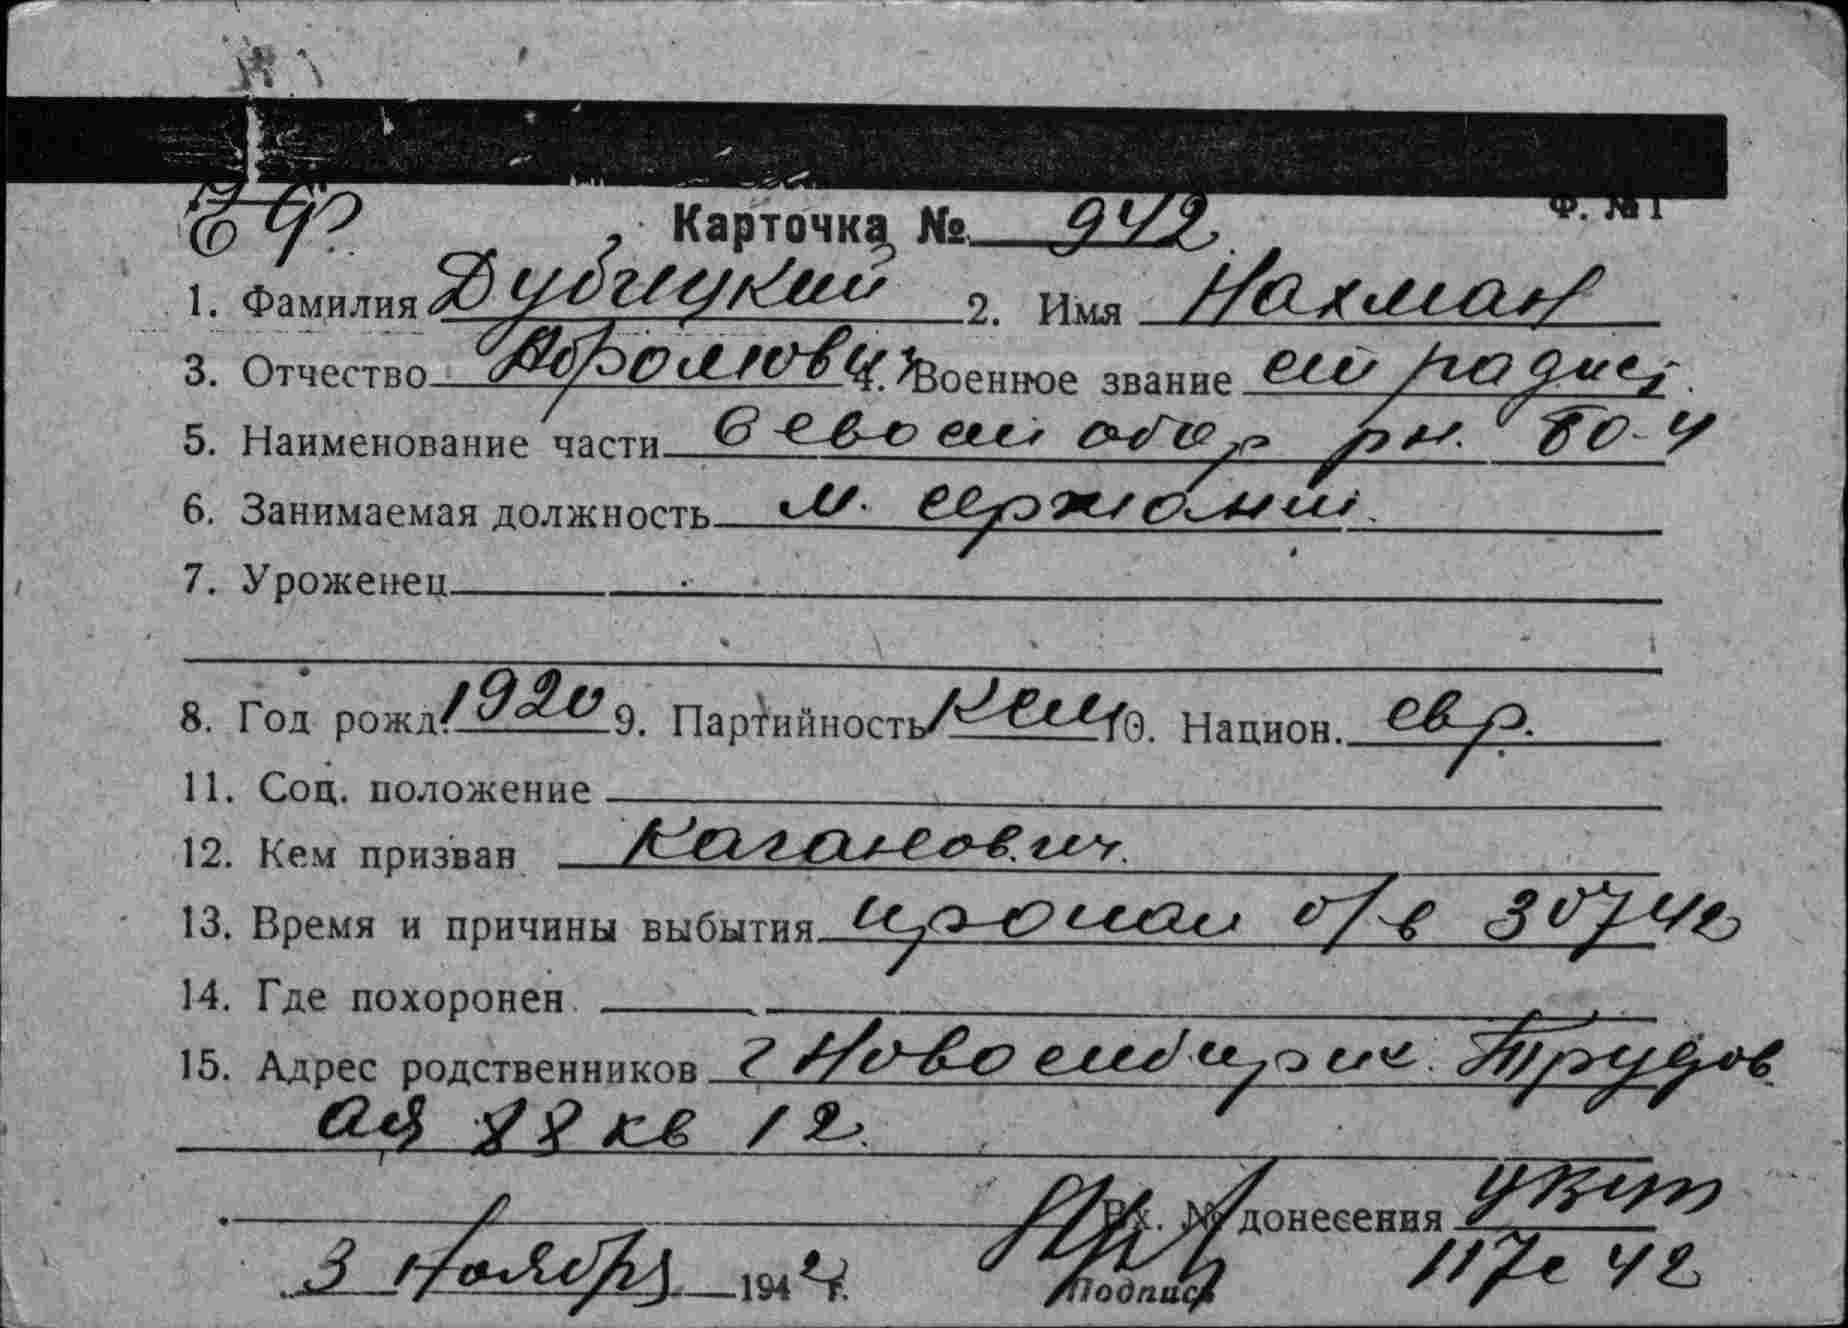 Ф. № 1
Карточка № 942
1. Фамилия Дубицкий 2. Имя Нахман
3. Отчество Абрамович 4. Военное звание ст радист
5. Наименование части Севаст обор рн. БО-Ч
6. Занимаемая должность м. сержант
7. Уроженец
8. Год рожд. 1920 9. Партийность 10. Национ. евр.
11. Соц. положение
12. Кем призван Каганович.
13. Время и причины выбытия пропал б/в 30742
14. Где похоронен
15. Адрес родственников г Новосибирск. Трудов
ая 88 кв 12.
Вх. № донесения
3 Ноября 1942 г. Подпись 42